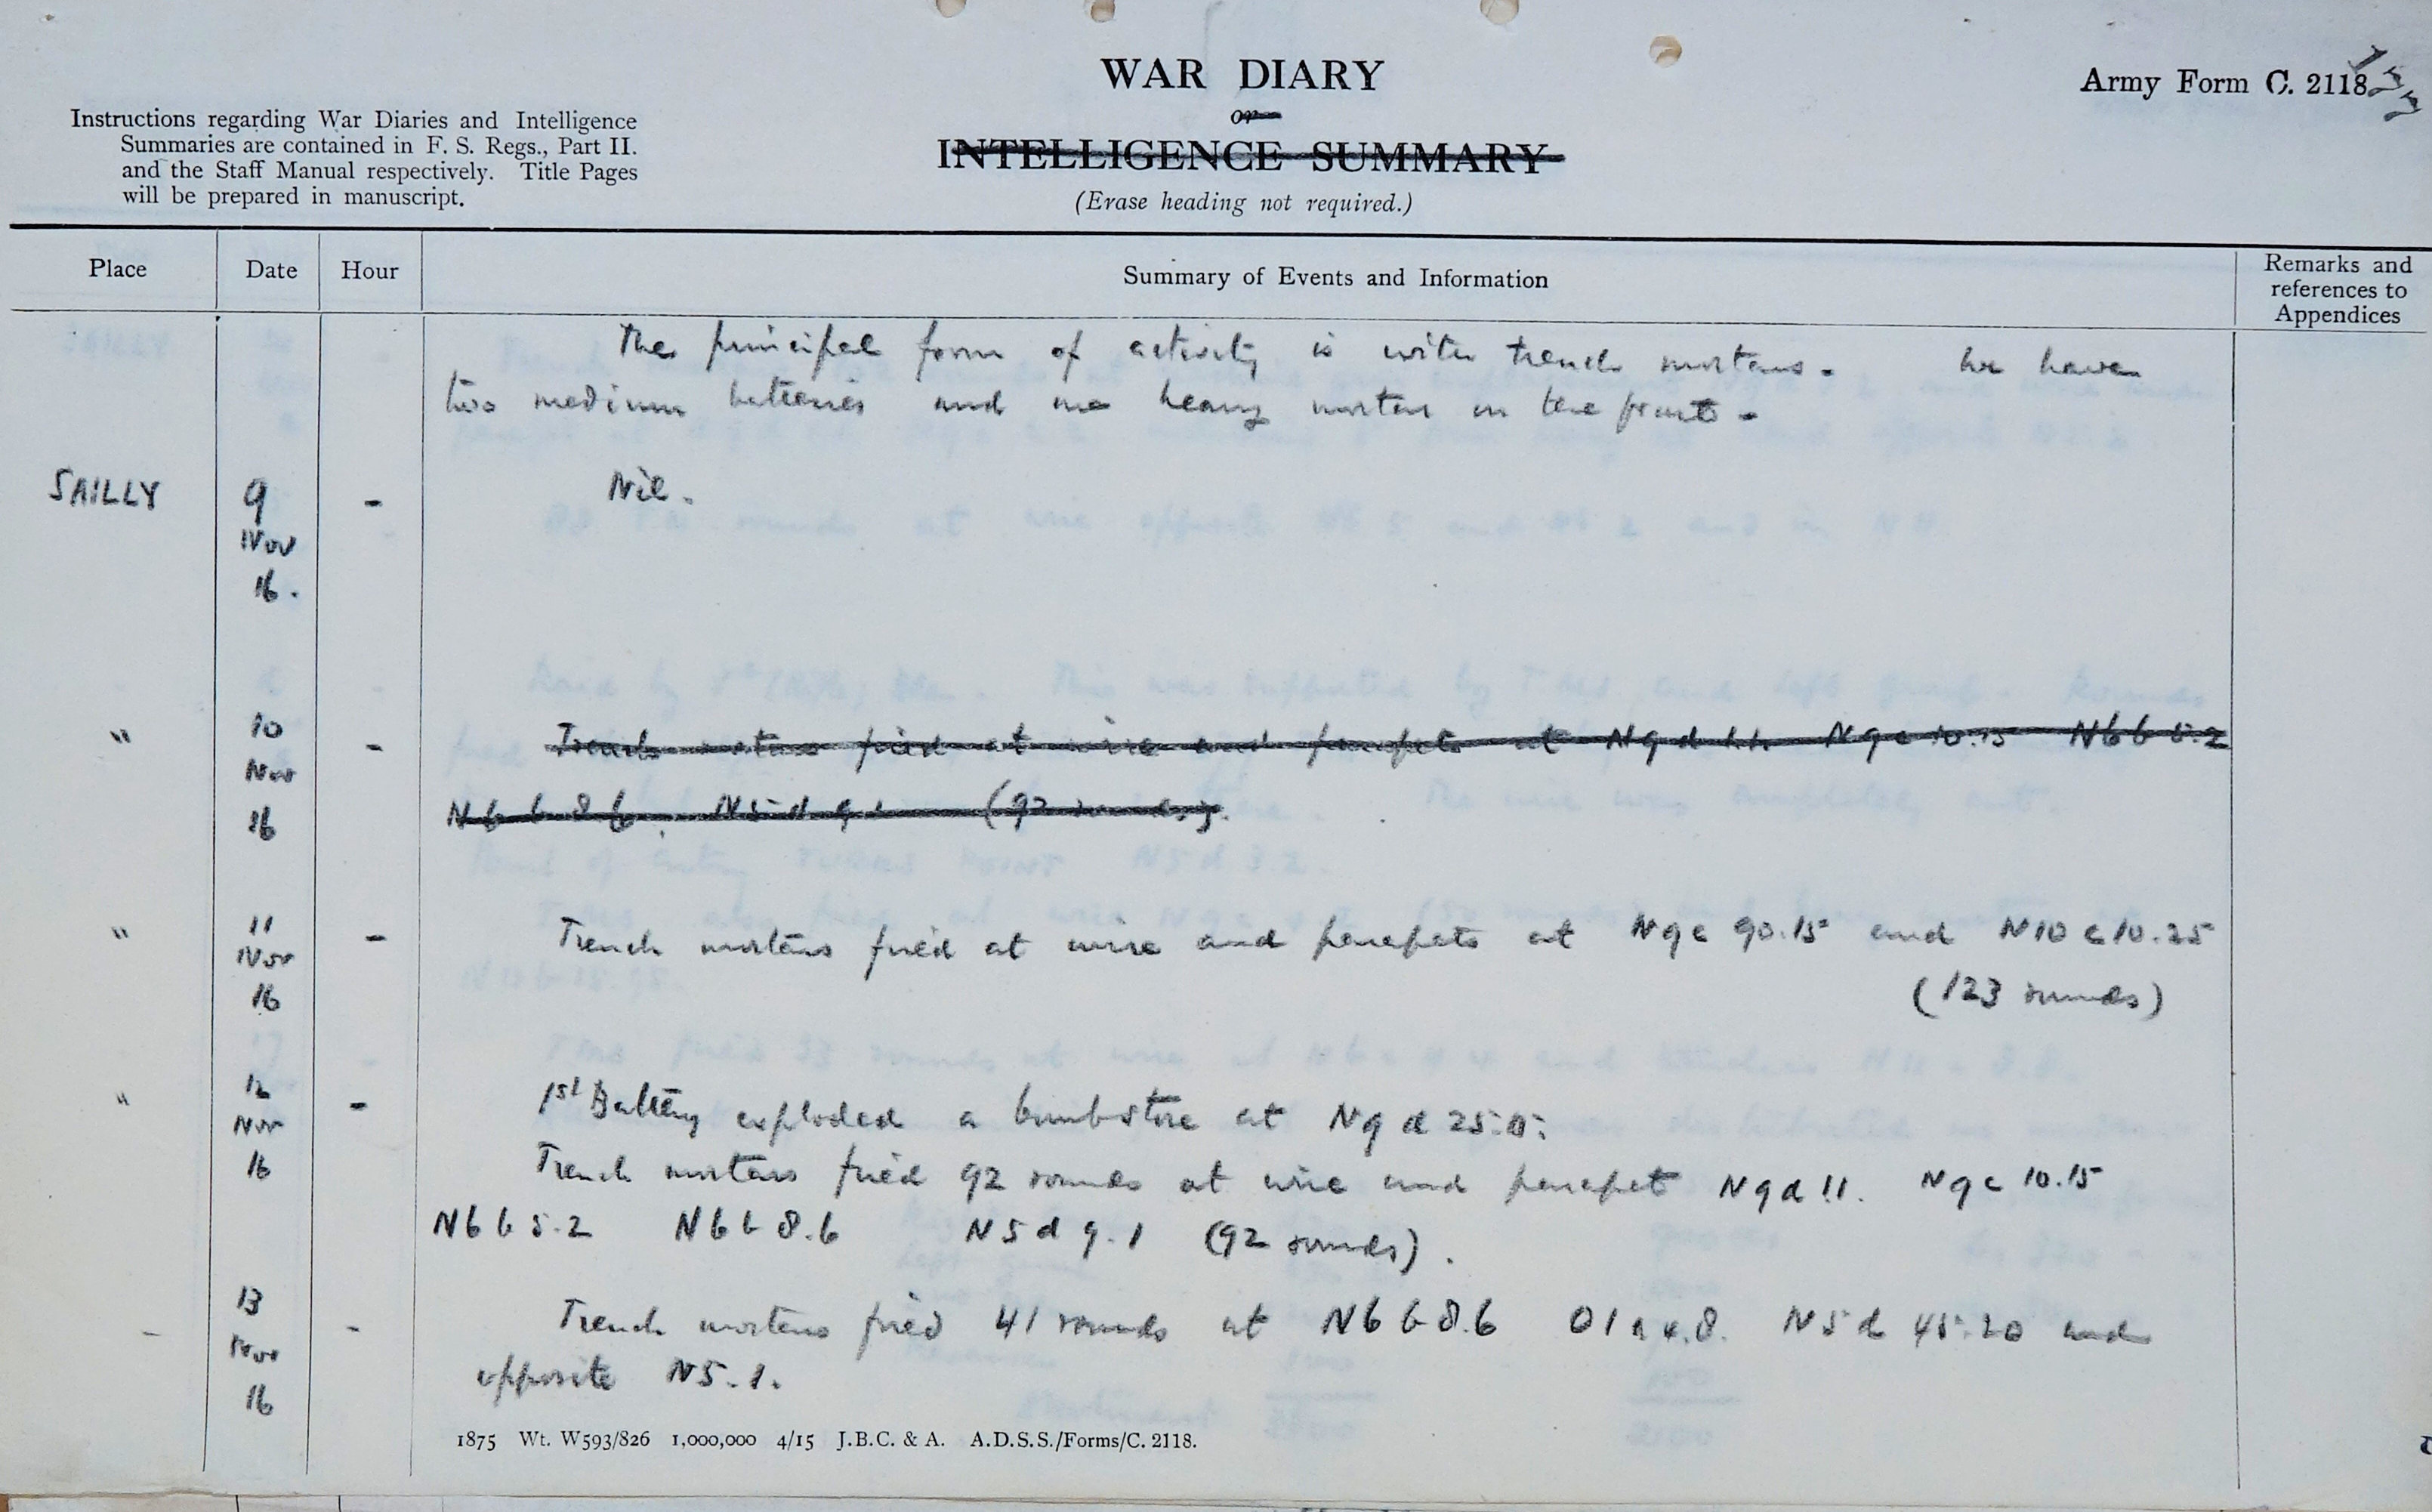 WAR DIARY
or
INTELLIGENCE SUMMARY
(Erase heading not required.)
Army Form C. 2118
Instructions regarding War Diaries and Intelligence
Summaries are contained in F. S. Regs., Part II.
and the Staff Manual respectively. Title Pages
will be prepared in manuscript.
Place Date Hour Summary of Events and Information Remarks and references to Appendices
The principal form of activity is with trench mortars. We have
two medium batteries and one heavy mortar in the front.
SAILLY 9 Nov 16. - Nil.
" 10 Nov 16 - Trench mortars fired at wire and parapets at N9d 1.1. N9c 10.15 N6b 5.2
N6b 8.6. N5d 9.1 (92 rounds).
" 11 Nov 16 - Trench mortars fired at wire and parapets at N9c 90.15 and N10c10.25
(123 rounds)
" 12 Nov 16 - 1st Battery exploded a bombstore at N9d
Trench mortars fired 92 rounds at wire and parapet N9d 1.1. N9c 10.15
N6b 5.2 N6b 8.6 N5d 9.1 (92 rounds).
- 13 Nov 16 - Trench mortars fired 41 rounds at N6b8.6 O1a 4.8. N5d 45.20 and
opposite N5.1.
1875 Wt. W593/826 1,000,000 4/15 J.B.C. & A. A.D.S.S./Forms/C. 2118.